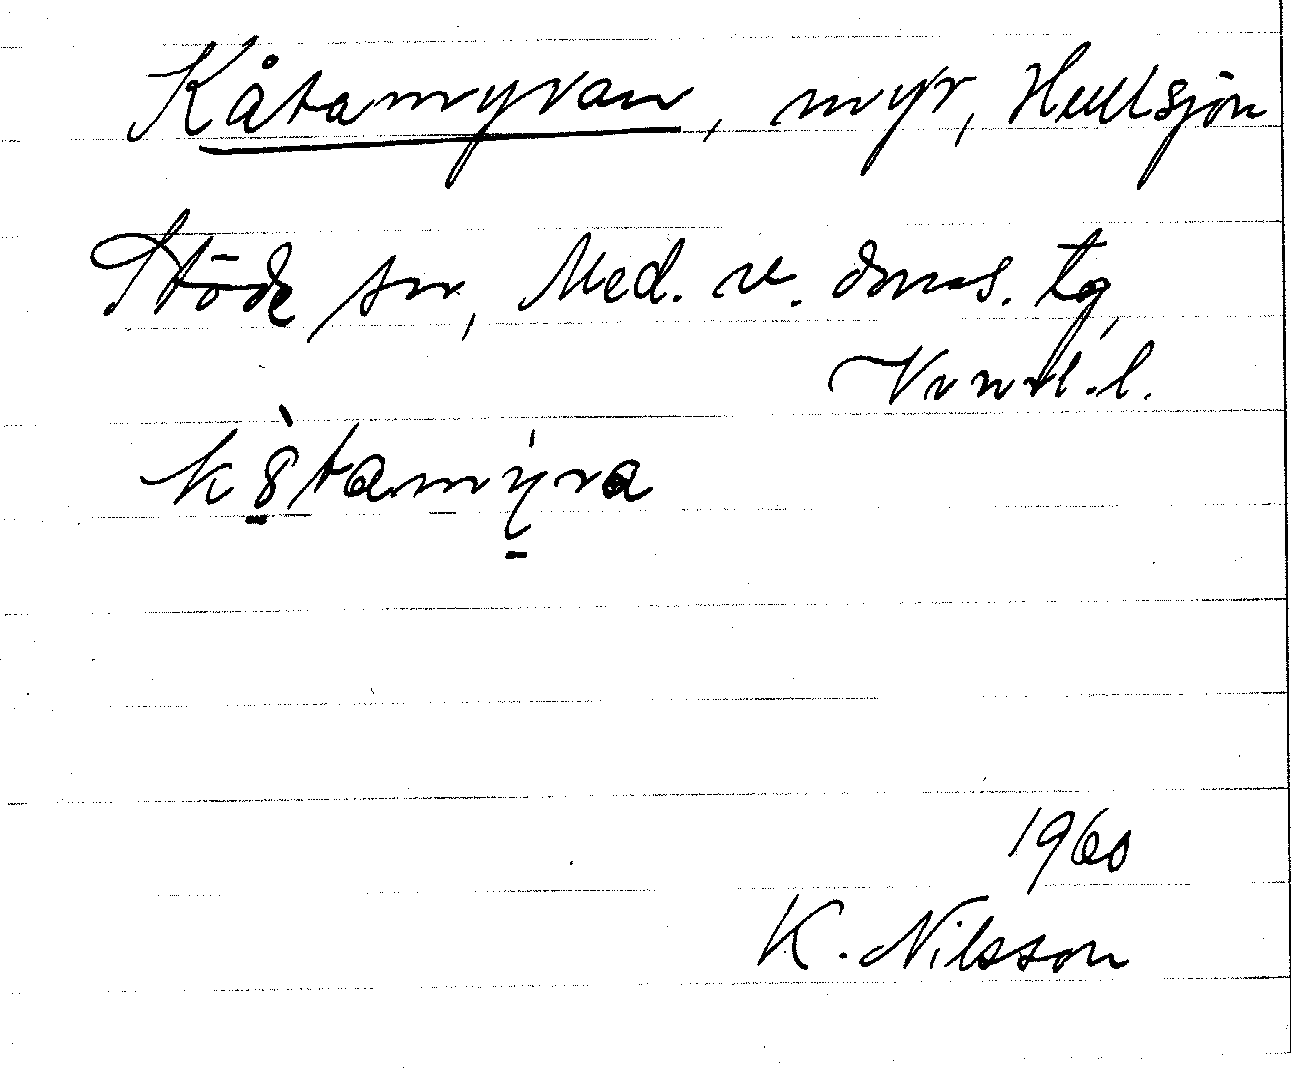 Kåtamyran, myr, Hullsjön
Stöde sn, Med. v. doms. tg,
Vnrl. l.
k8̀tamýra
1960
K. Nilsson